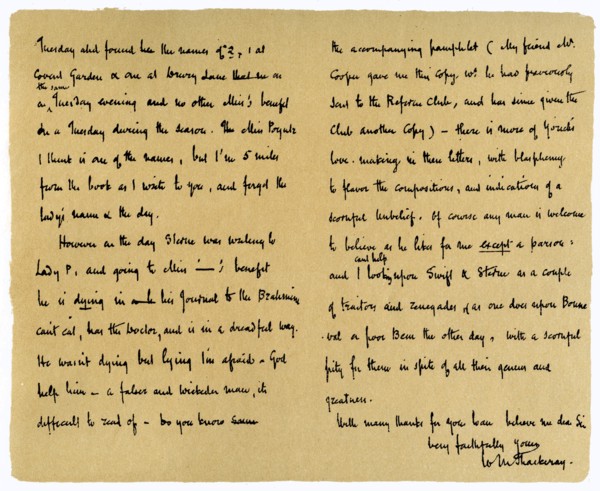 Tuesday and found her the names of 2, 1 at
Covent Garden & one at Drury Lane that he on
the same
a Tuesday evening and no other Miss's benefit
on a Tuesday during the season. The Miss Poyntz
I think is one of the names, but I'm 5 miles
from the book as I write to you, and forget the
lady's name & the day.
However on the day Sterne was writing to
Lady P. and going to Miss '—'s benefit
he is dying in his Journal to the Brahmine
can't eat, has the Doctor, and is in a dreadful way.
He wasn't dying but lying I'm afraid - God
help him - a falser and wickeder man, its
difficult to read of - Do you know some
the accompanying pamphlet (My friend Mr.
Cooper gave me this Copy, wh. he had previously
sent to the Reform Club, and has since given the
Club another Copy) - there is more of Yorick's
love-making in these letters, with blasphemy
to flavor the compositions, and indications of a
scornful unbelief. Of course any man is welcome
to believe as he likes for me except a parson:
cant help
and I looking upon Swift & Sterne as a couple
of traitors and renegades (as one does upon Bonne
-val or poor Bem the other day, with a scornful
pity for them in spite of all their genius and
greatness.
With many thanks for your loan believe me dear Sir
Very faithfully Yours
W M Thackeray.